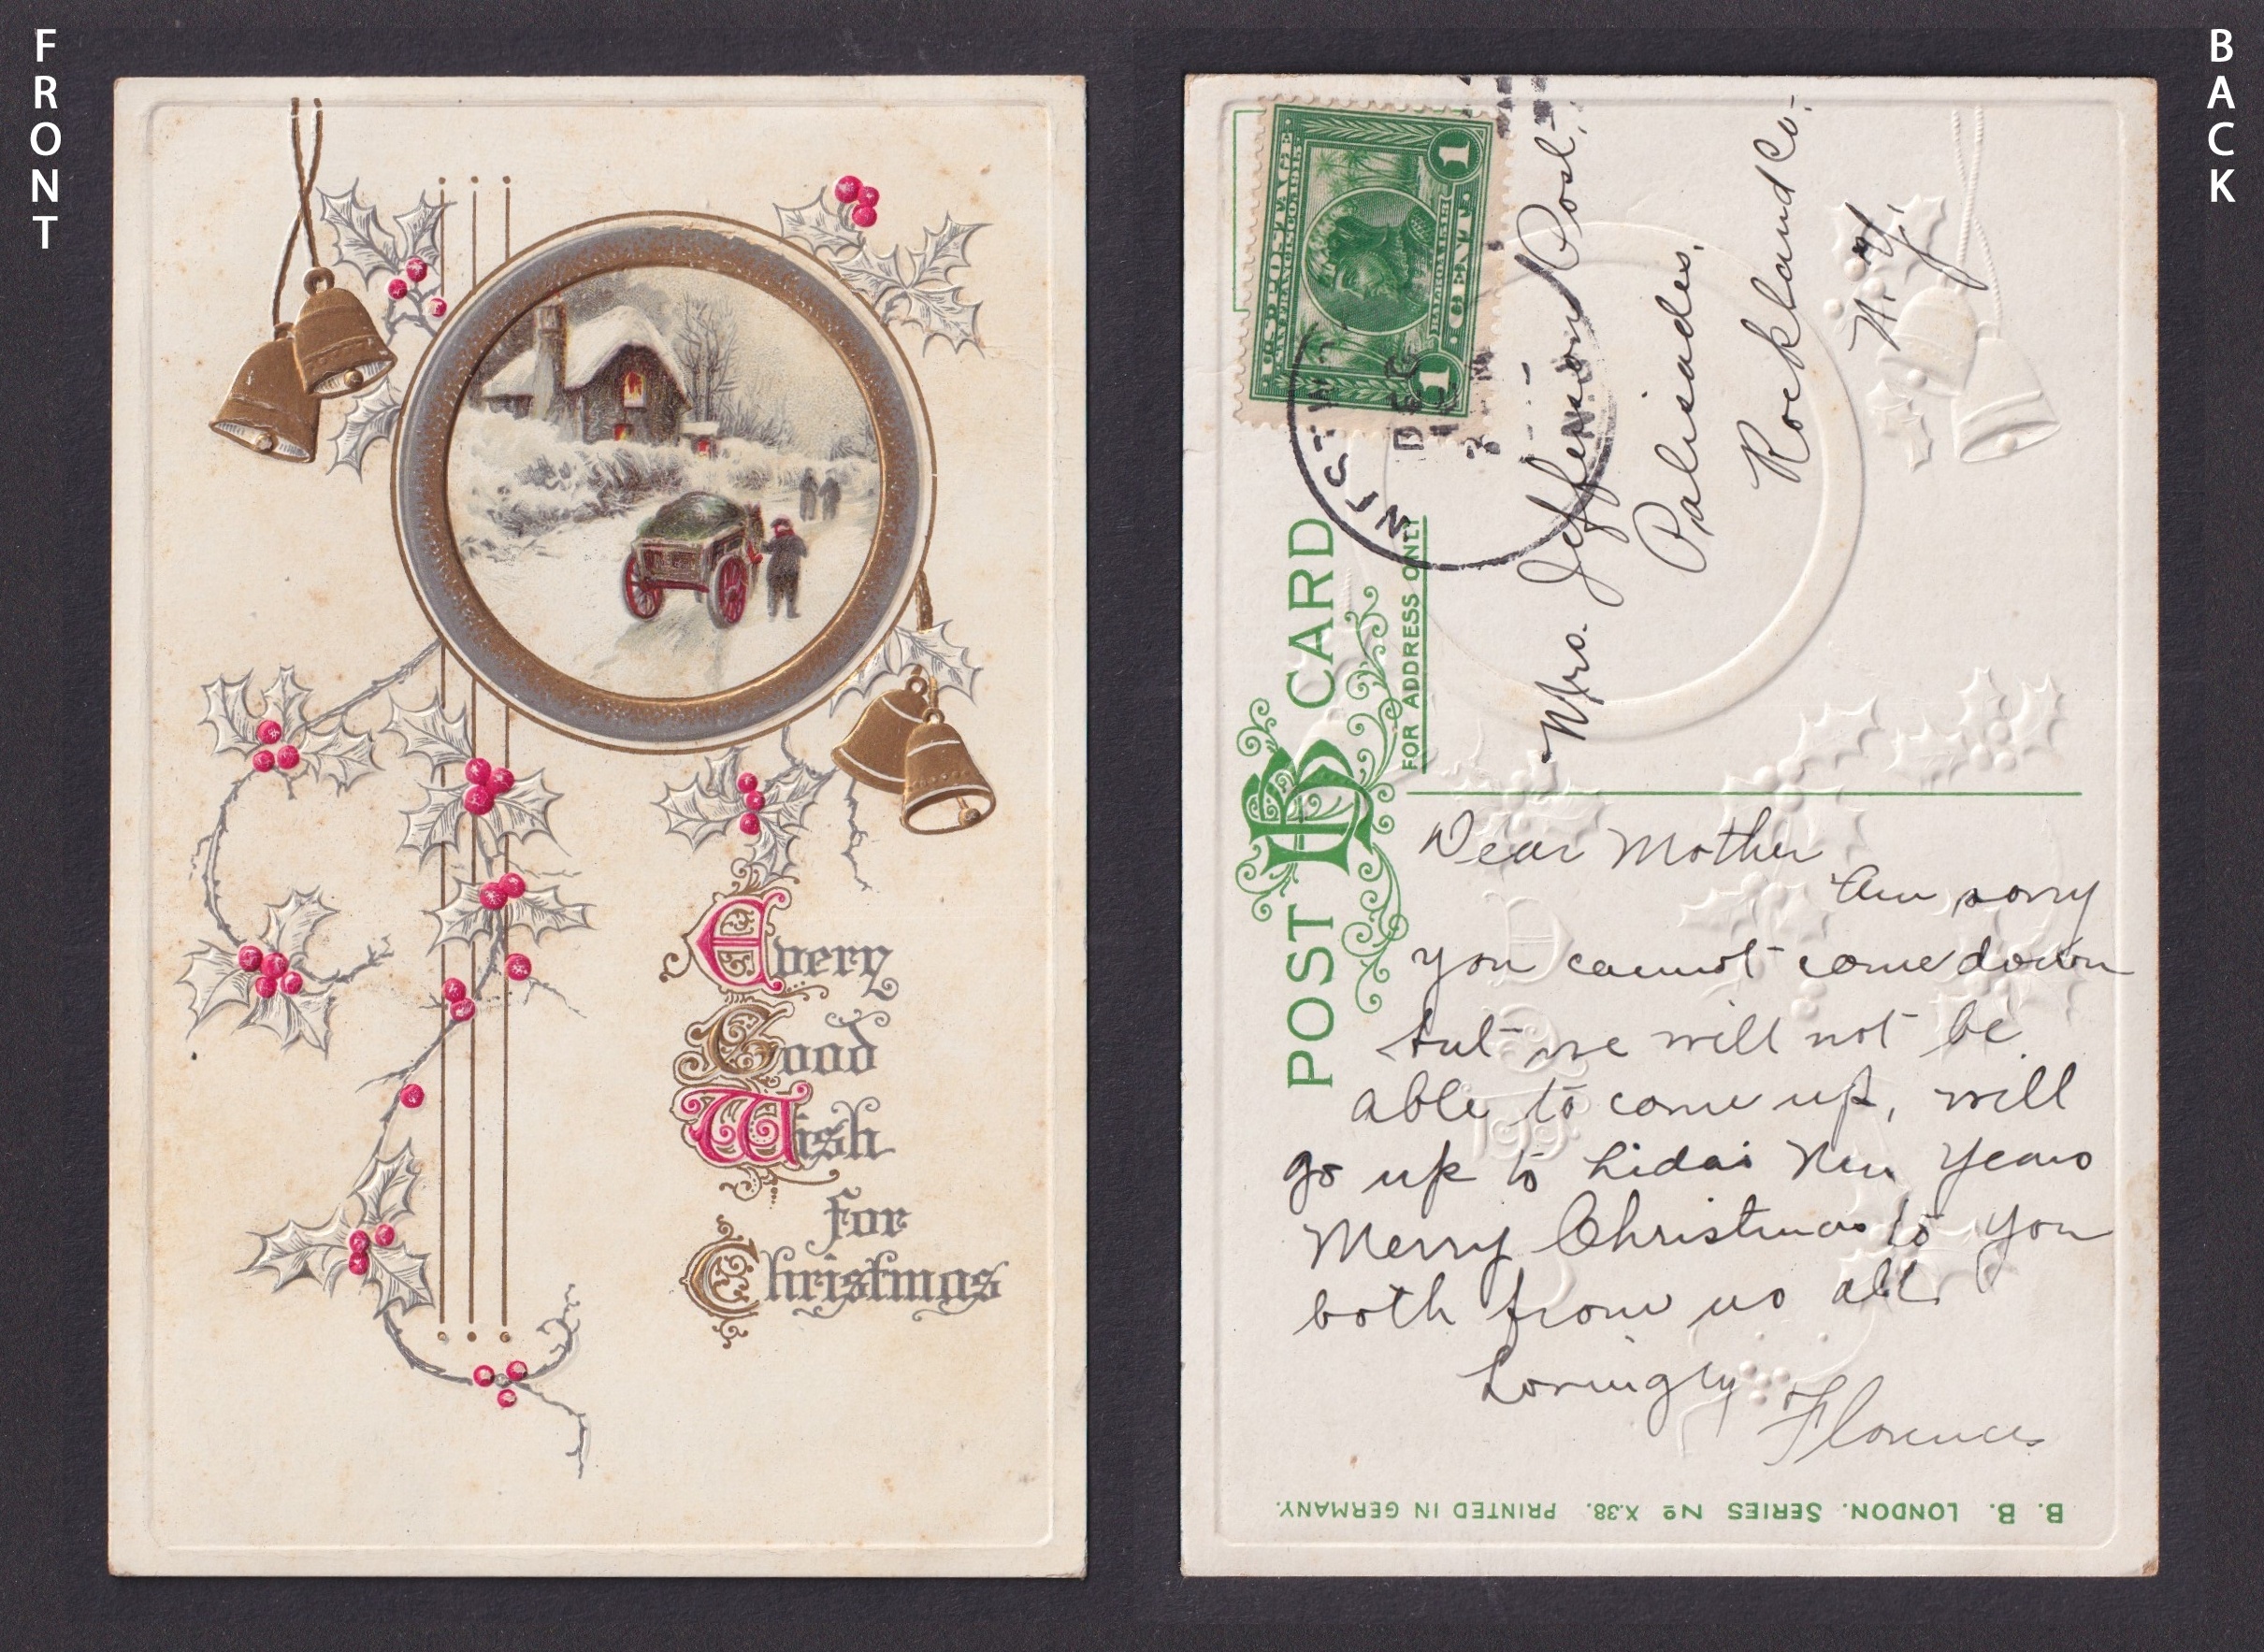 FRONT
BACK
Every
Good
Wish
for
Christmas
U.S. POSTAGE
SAN FRANCISCO
1 1
BALBOA 1513
ONE CENT
DEC
POST CARD
BB
FOR ADDRESS ONLY
Mrs. Jefferson Post,
Palisades,
Rockland Co.
N.Y.
Dear Mother
Am sorry
you cannot come down
but we will not be
able to come up, will
go up to Lidas New Years
Merry Christmas to you
both from us all
Lovingly
Florence
B. B. LONDON. SERIES No X.38. PRINTED IN GERMANY.